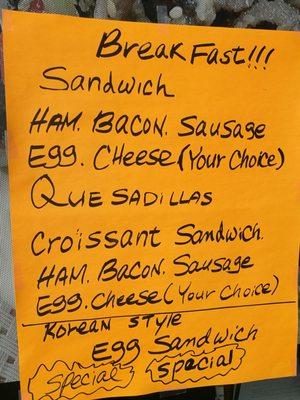 BreakFast!!!
Sandwich
HAM. BACON. Sausage
Egg. CHeese (Your CHoice)
QUESADILLAS
Croïssant Sandwich.
HAM. BACON. Sausage
Egg. CHeese (Your CHoice)
Korean STyle
Egg Sandwich
special special